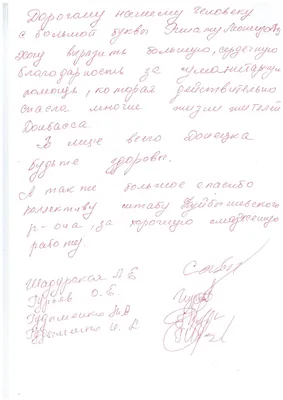 Дорогому нашему человеку
с большой буквы Ринату Леонидовичу
Хочу выразить большую, сердечную
благодарность за гуманитарную
помощь, которая действительно
спасла многие жизни жителей
Донбасса.
В лице всего Донецка
будьте здоровы.
А также большое спасибо
коллективу штабу Куйбышевского
р-она, за хорошую слаженную
работу.
Шадурская Л Б
Гуреев О. Б.
Гудыменко
Гудыменко